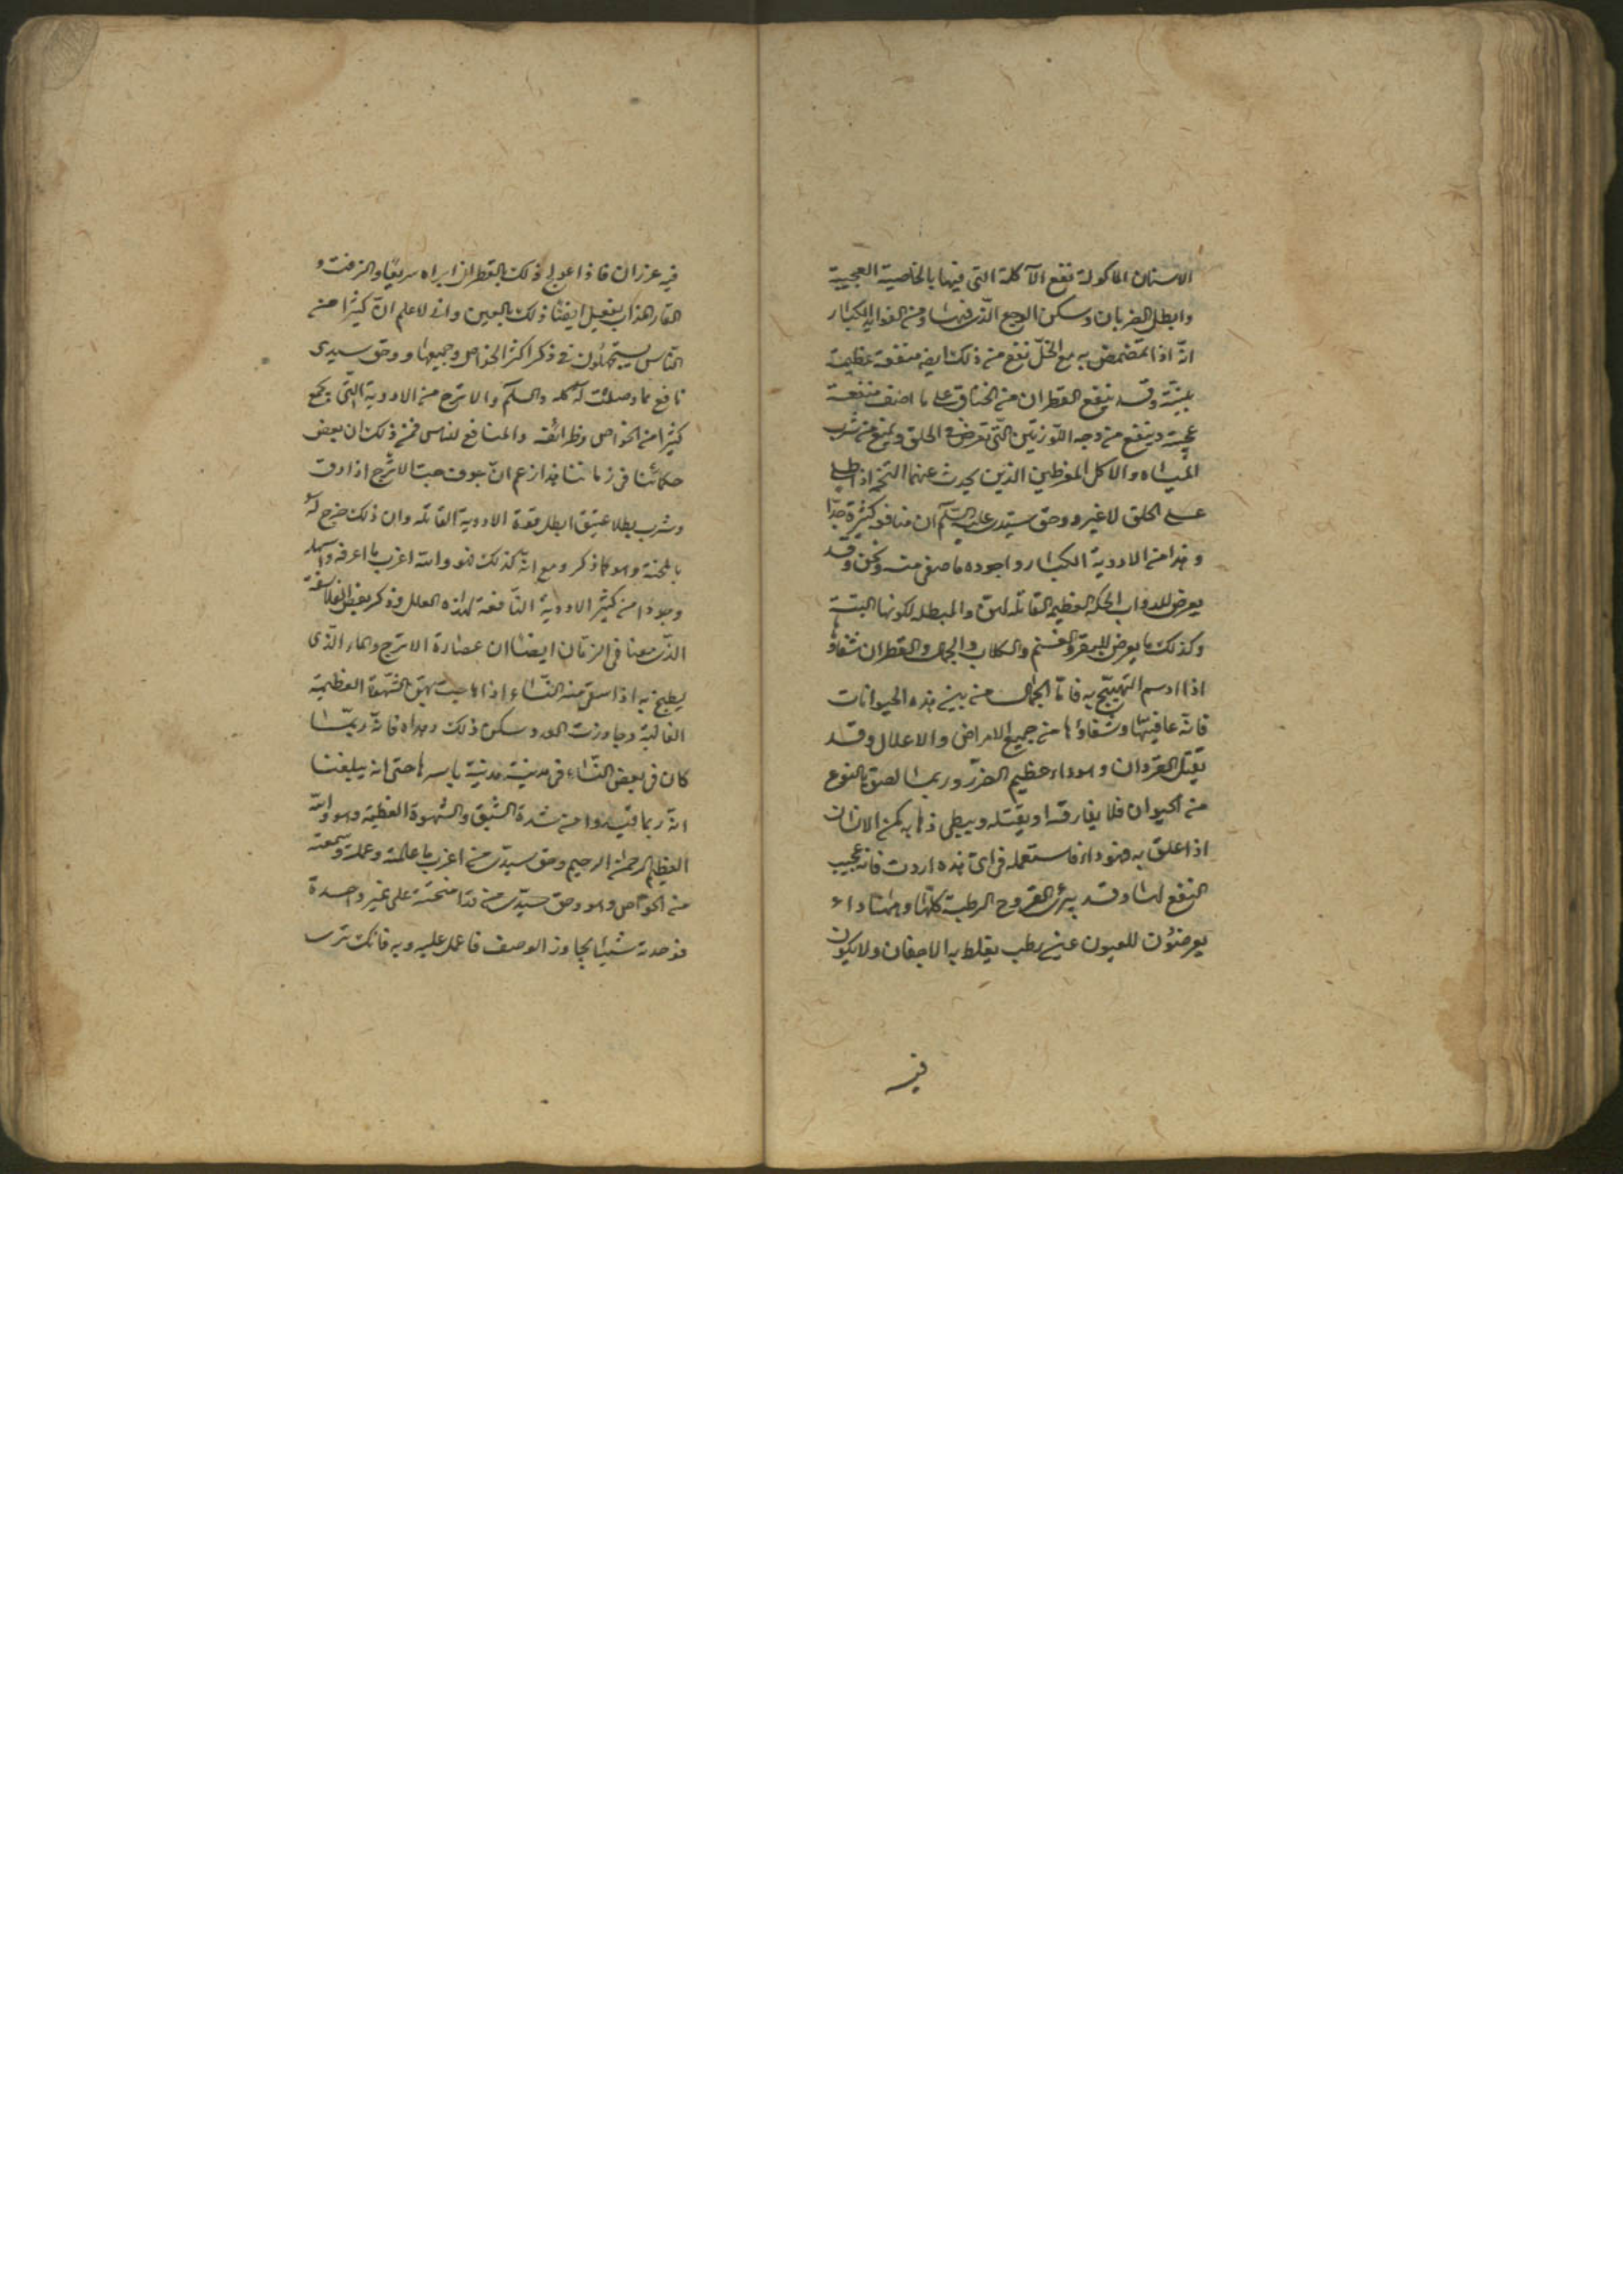 الاسنان الماكولة نفع الآكلة التى فيها بالخاصية العجيبة
وابطل الضربان وسكن الوجع الذى فيها ومن الفوايد الكبار
انه اذا تمضمض به مع الخلّ نفع من ذلك ايضه منفعة عظيمة
بليغة وقد ينفع القطران من الخناق على ما اصف منفعة
عجيبة وينفع من وجه اللوزتين التى تعرض فى الحلق ويمنع من شرب
المياه والاكل المفرطين الذين يحدث عنهما التخم اذا طلى
على الحلق لاغير ووحق سيدى عليه السلم ان منافعه كثيرة جدا
وهذا من الادوية الكبار واجوده ماصفى منه وثخن وقد
يعرض للدواب الحكة العظيمة القاتلة لهن والمبطلة لكونها البتة
وكذلك ما يعرض للبقر والغنم والكلاب والجمال والقطران شفاؤها
اذا ادسم به فاما الجمال من بين هذه الحيوانات
فانه عافيتها وشفاؤها من جميع الامراض والاعلال وقد
يقتل القردان وهو داء عظيم الضرر وربما لصق بالنوع
من الحيوان فلا يفارقه او يقتله ويبطى ذهابه من الانسان
اذا علق به فهو داء فاستعمله فى اى هذه اردت فانه عجيب
النفع لها وقد يبرئ القروح الرطبة كلها وههنا داء
يعرض للعيون عين رطب يغلظ به الاجفان ولا يكون
فيه
فيه عزران فاذا عولج ذلك بالقطران ابراه سريعا والزفت و
القار هذاب يفعل ايضا ذلك بالعين وانى لاعلم انّ كثيرا من
الناس يستجهلون فى ذكر اكثر الخواص وجميعها ووحق سيدى
نافع مما وصلت له كله والسلم والاترج من الادوية التى يجمع
كثيرا من الخواص وظرائفه والمنافع للناس فمن ذلك ان بعض
حكمائنا فى زماننا هذا زعم انّ جوف حب الاترج اذا دق
وشرب بطلا عتيق ابطل قوة الادوية القاتلة وان ذلك خرج له
بالمحنة وهو كما ذكر ومع انه كذلك فهو والله اغرب ما اعرفه واسهله
وجودا من كثير الادوية النافعة لهذه العلل وذكر بعض الفلاسفة
الذى معنا فى الزمان ايضا ان عصارة الاترج والماء الذى
يطبخ به اذا سقى منه النساء اذا هاجت بهن الشهوة العظيمة
الغالبة وجاوزت الحد وسكن ذلك وهداه فانه ربما
كان فى بعض النساء فى مدينة مدينة باسرها حتى انه يبلغنا
انه ربما قيدوا من شدة الشبق والشهوة العظيمة وهو والله
العظيم الرحمن الرحيم وحق سيدى من اغرب ما علمته وعملته وسمعته
من الخواص وهو وحق سيدى من قدا متحنته على غير واحدة
فوجدته شيئا يجاوز الوصف فاعمل عليه وبه فانك ترى